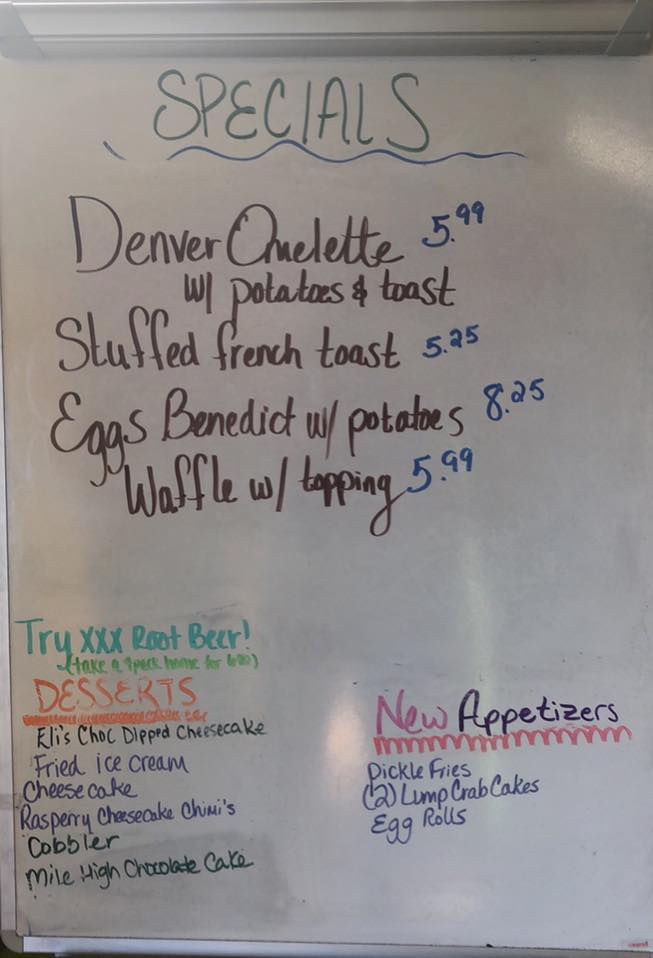 SPECIALS
Denver Omelette 5.99
w/ potatoes & toast
Stuffed french toast 5.25
Eggs Benedict w/ potatoes 8.25
Waffle w/ topping 5.99
Try XXX Root Beer!
(take a 4pack home for
DESSERTS
Eli's Choc Dipped Cheesecake
Fried ice cream
Cheesecake
Rasperry Cheesecake Chimi's
Cobbler
Mile High Chocolate Cake
New Appetizers
Pickle Fries
(2) Lump Crab Cakes
Egg Rolls